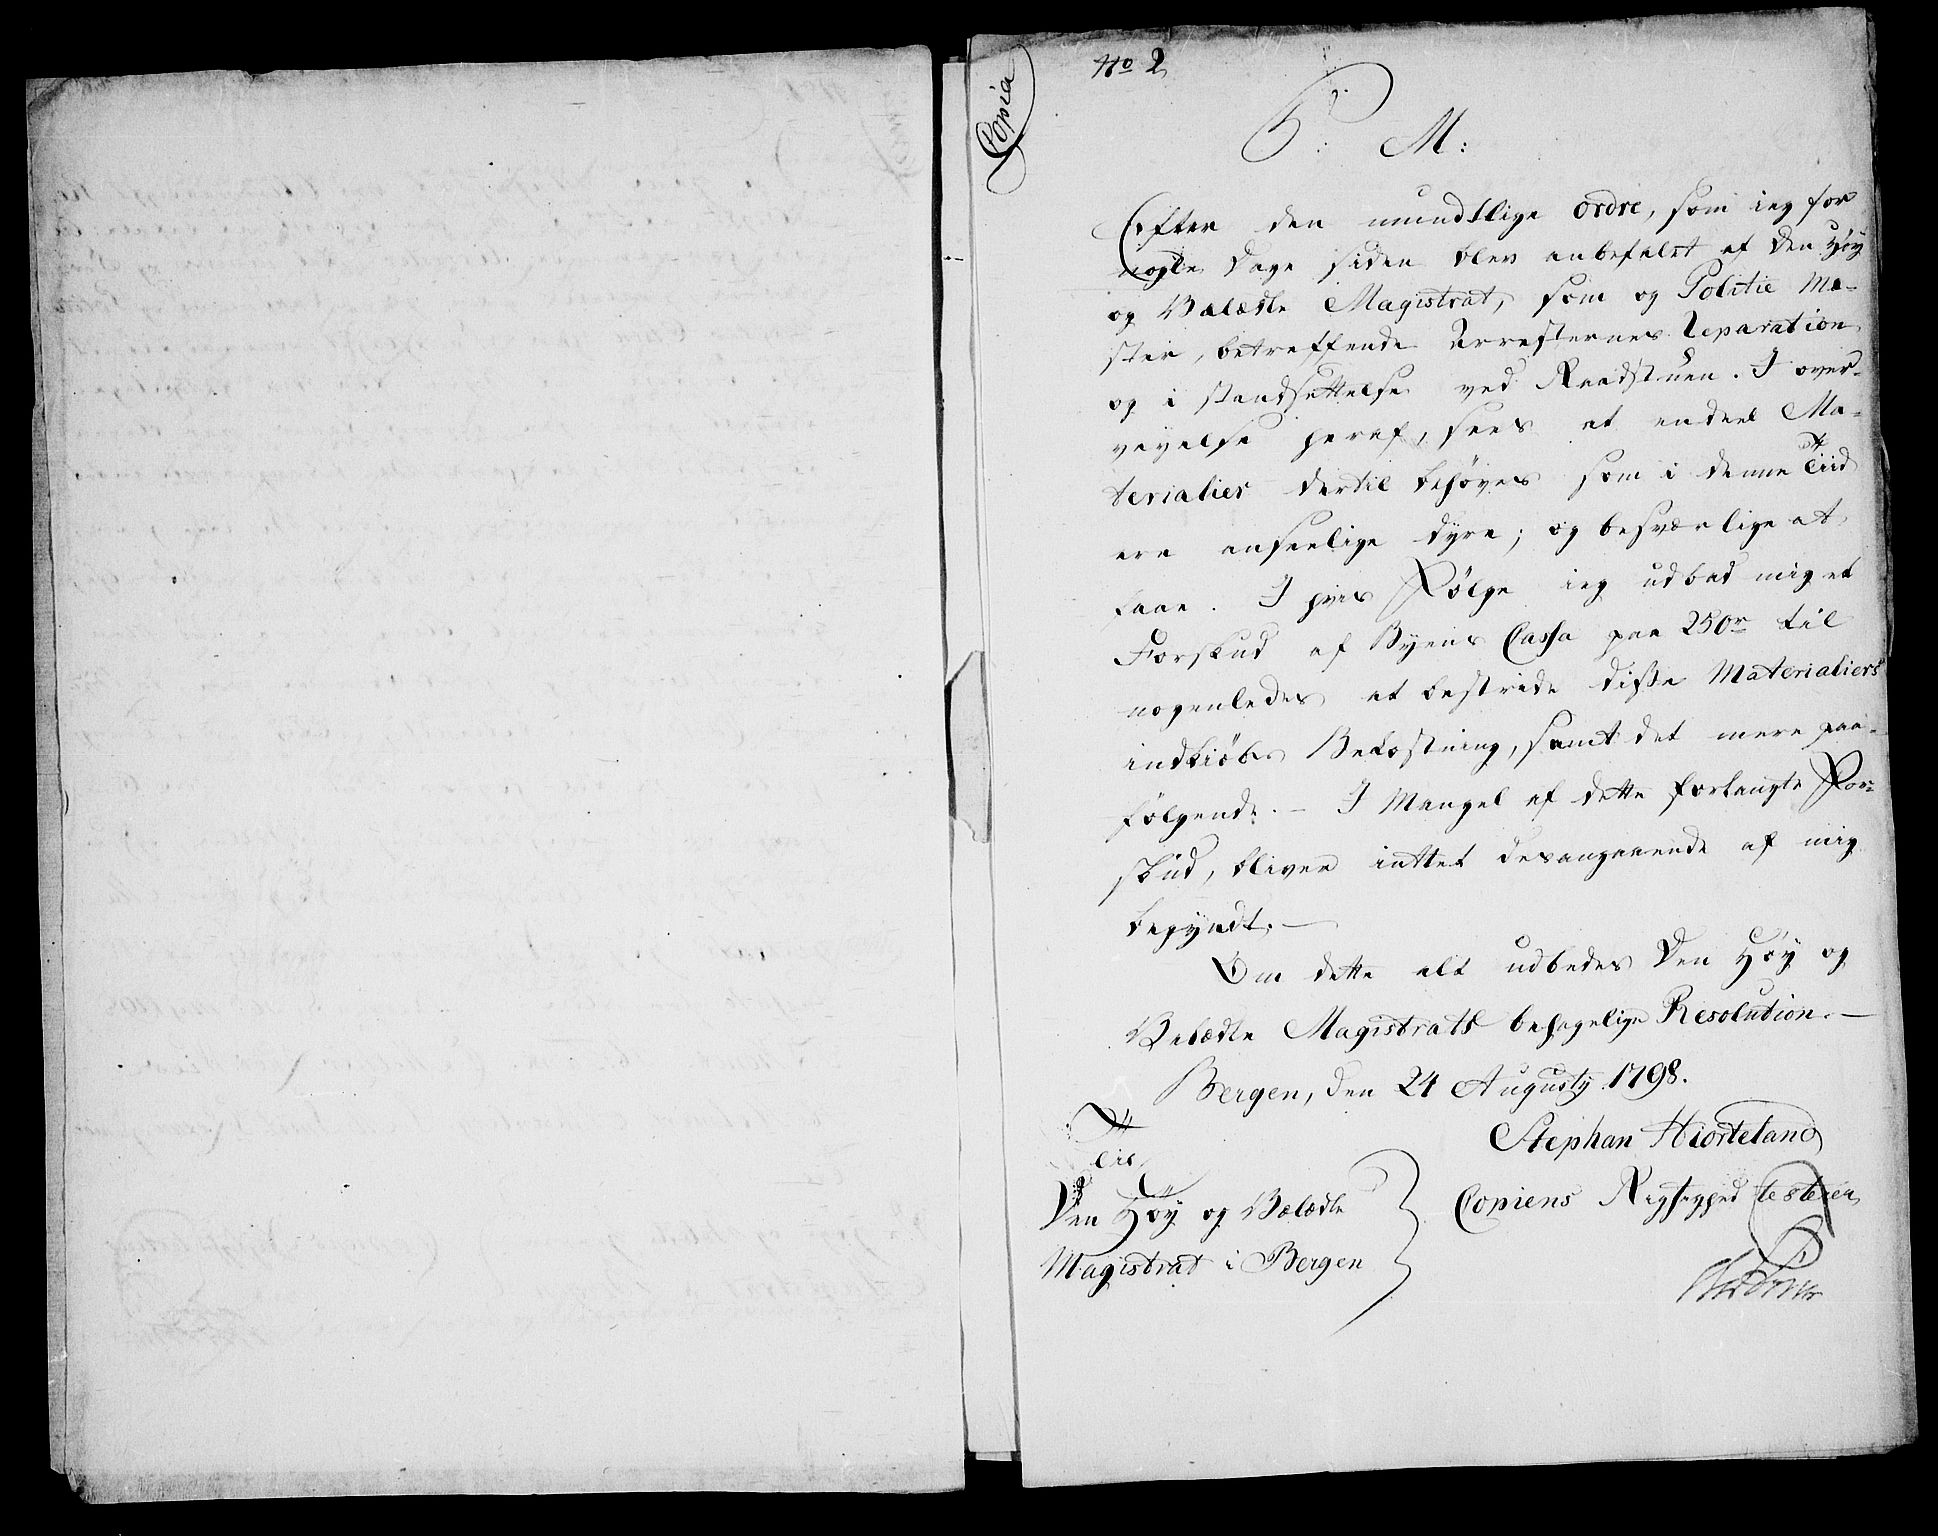 Copia
No 2
P: M:
Efter den mundtlige ordre, som ieg for
nogle Dage siden blev anbefalet af Den Høy
og Velædle Magistrat, som og Politie Me-
ster, betreffende Arresternes Reparation
og i standsettelse ved Raadstuen. I over-
veyelse heraf, sees at endeel Ma-
terialier dertil behøves som i denne Tiid
ere anseelige dyre; og besværlige at
faae. I hvis Følge ieg udbad mig et
Forskud af Byens Cassa paa 250r til
nogenledes at bestride disse Materialiers
indkiøbs Bekostning, samt det mere paa-
følgende. - I Mangel af dette forlangte For-
skud, bliver intet desangaaende af mig
begyndt. -
Om dette alt udbedes Den Høy og
Velædle Magistrats behagelige Resolution. -
Bergen, den 24 Augusty 1798.
Stephan Hiorteland
Til
Den Høy og Velædle
Magistrat i Bergen
Copiens Rigtighed testerer